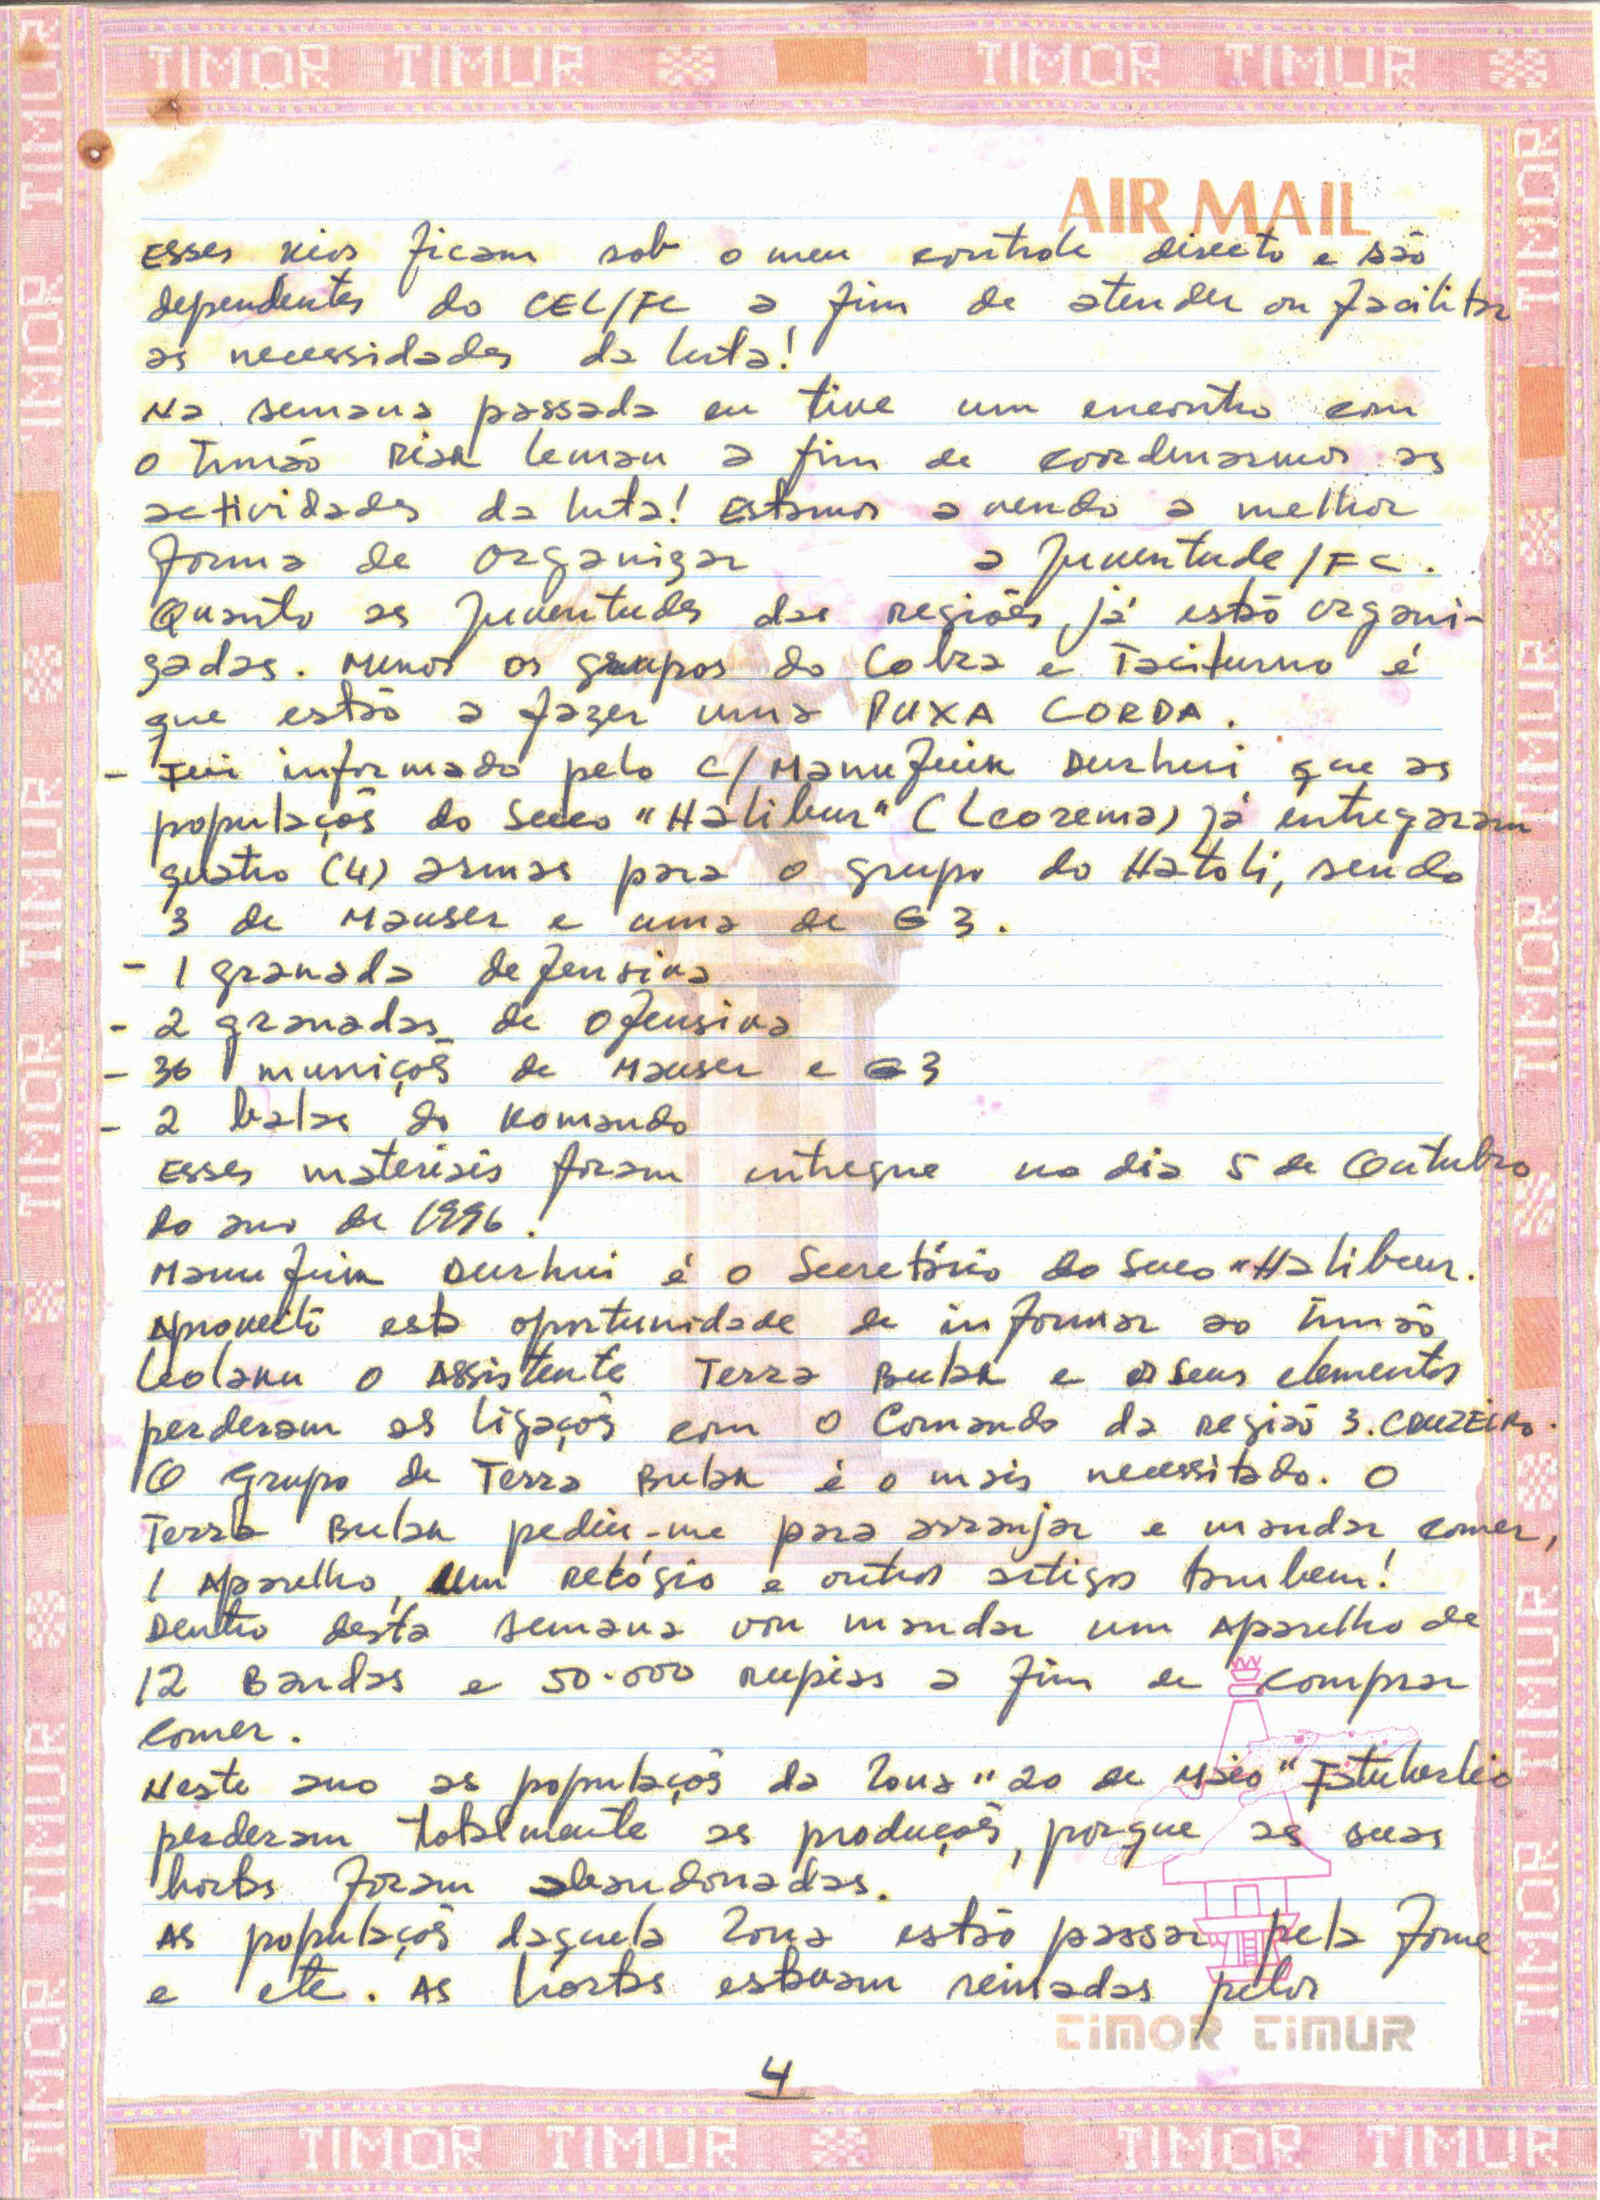 TIMOR TIMUR TIMOR TIMUR
AIR MAIL
Esses ficam sob o meu controle directo e são
dependentes do CEL/FC a fim de atender ou facilitar
as necessidades da luta!
Na semana passada eu tive um encontro com
o Irmão Riak Leman a fim de coordenarmos as
actividades da luta! Estamos a vendo a melhor
forma de organizar a Juventude/FC.
Quanto as Juventudes das regiões, já estão organi-
zadas. Menos os grupos do Cobra e Taciturno é
que estão a fazer uma PUXA CORDA.
- Fui informado pelo C/Manufuik Durhui que as
populaçõs do Suco "Halibur" (Leorema) já entregaram
quatro (4) armas para o grupo do Hatoli, sendo
3 de Mauser e uma de G3.
- 1 granada defensiva
- 2 granadas de ofensiva
- 36 muniçõs de Mauser e G3
- 2 balas do Komando
Esses materiais foram entregue no dia 5 de Outubro
do ano de 1996.
Manufuik Durhui é o Secretário do Suco "Halibur.
Aproveito esta oportunidade de informar ao Irmão
o Assistente Terra Bulak e os seus elementos
perderam as ligaçõs com o Comando da região 3. CRUZEIRO.
O Grupo de Terra Bulak é o mais necessitado. O
Terra Bulak pediu-me para arranjar e mandar comer,
1 Aparelho, um relógio e outros artigos tambem!
Dentro desta semana vou mandar um Aparelho de
12 Bandas e 50.000 rupias a fim de comprar
comer.
Neste ano as populaçõs da Zona "20 de Maio"
perderam totalmente as produçõs, porque as suas
hortas foram abandonadas.
As populaçõs daquela Zona estão passar pela fome
e etc. As hortas estavam reinadas pelos
TIMOR TIMUR
4
TIMOR TIMUR TIMOR TIMUR